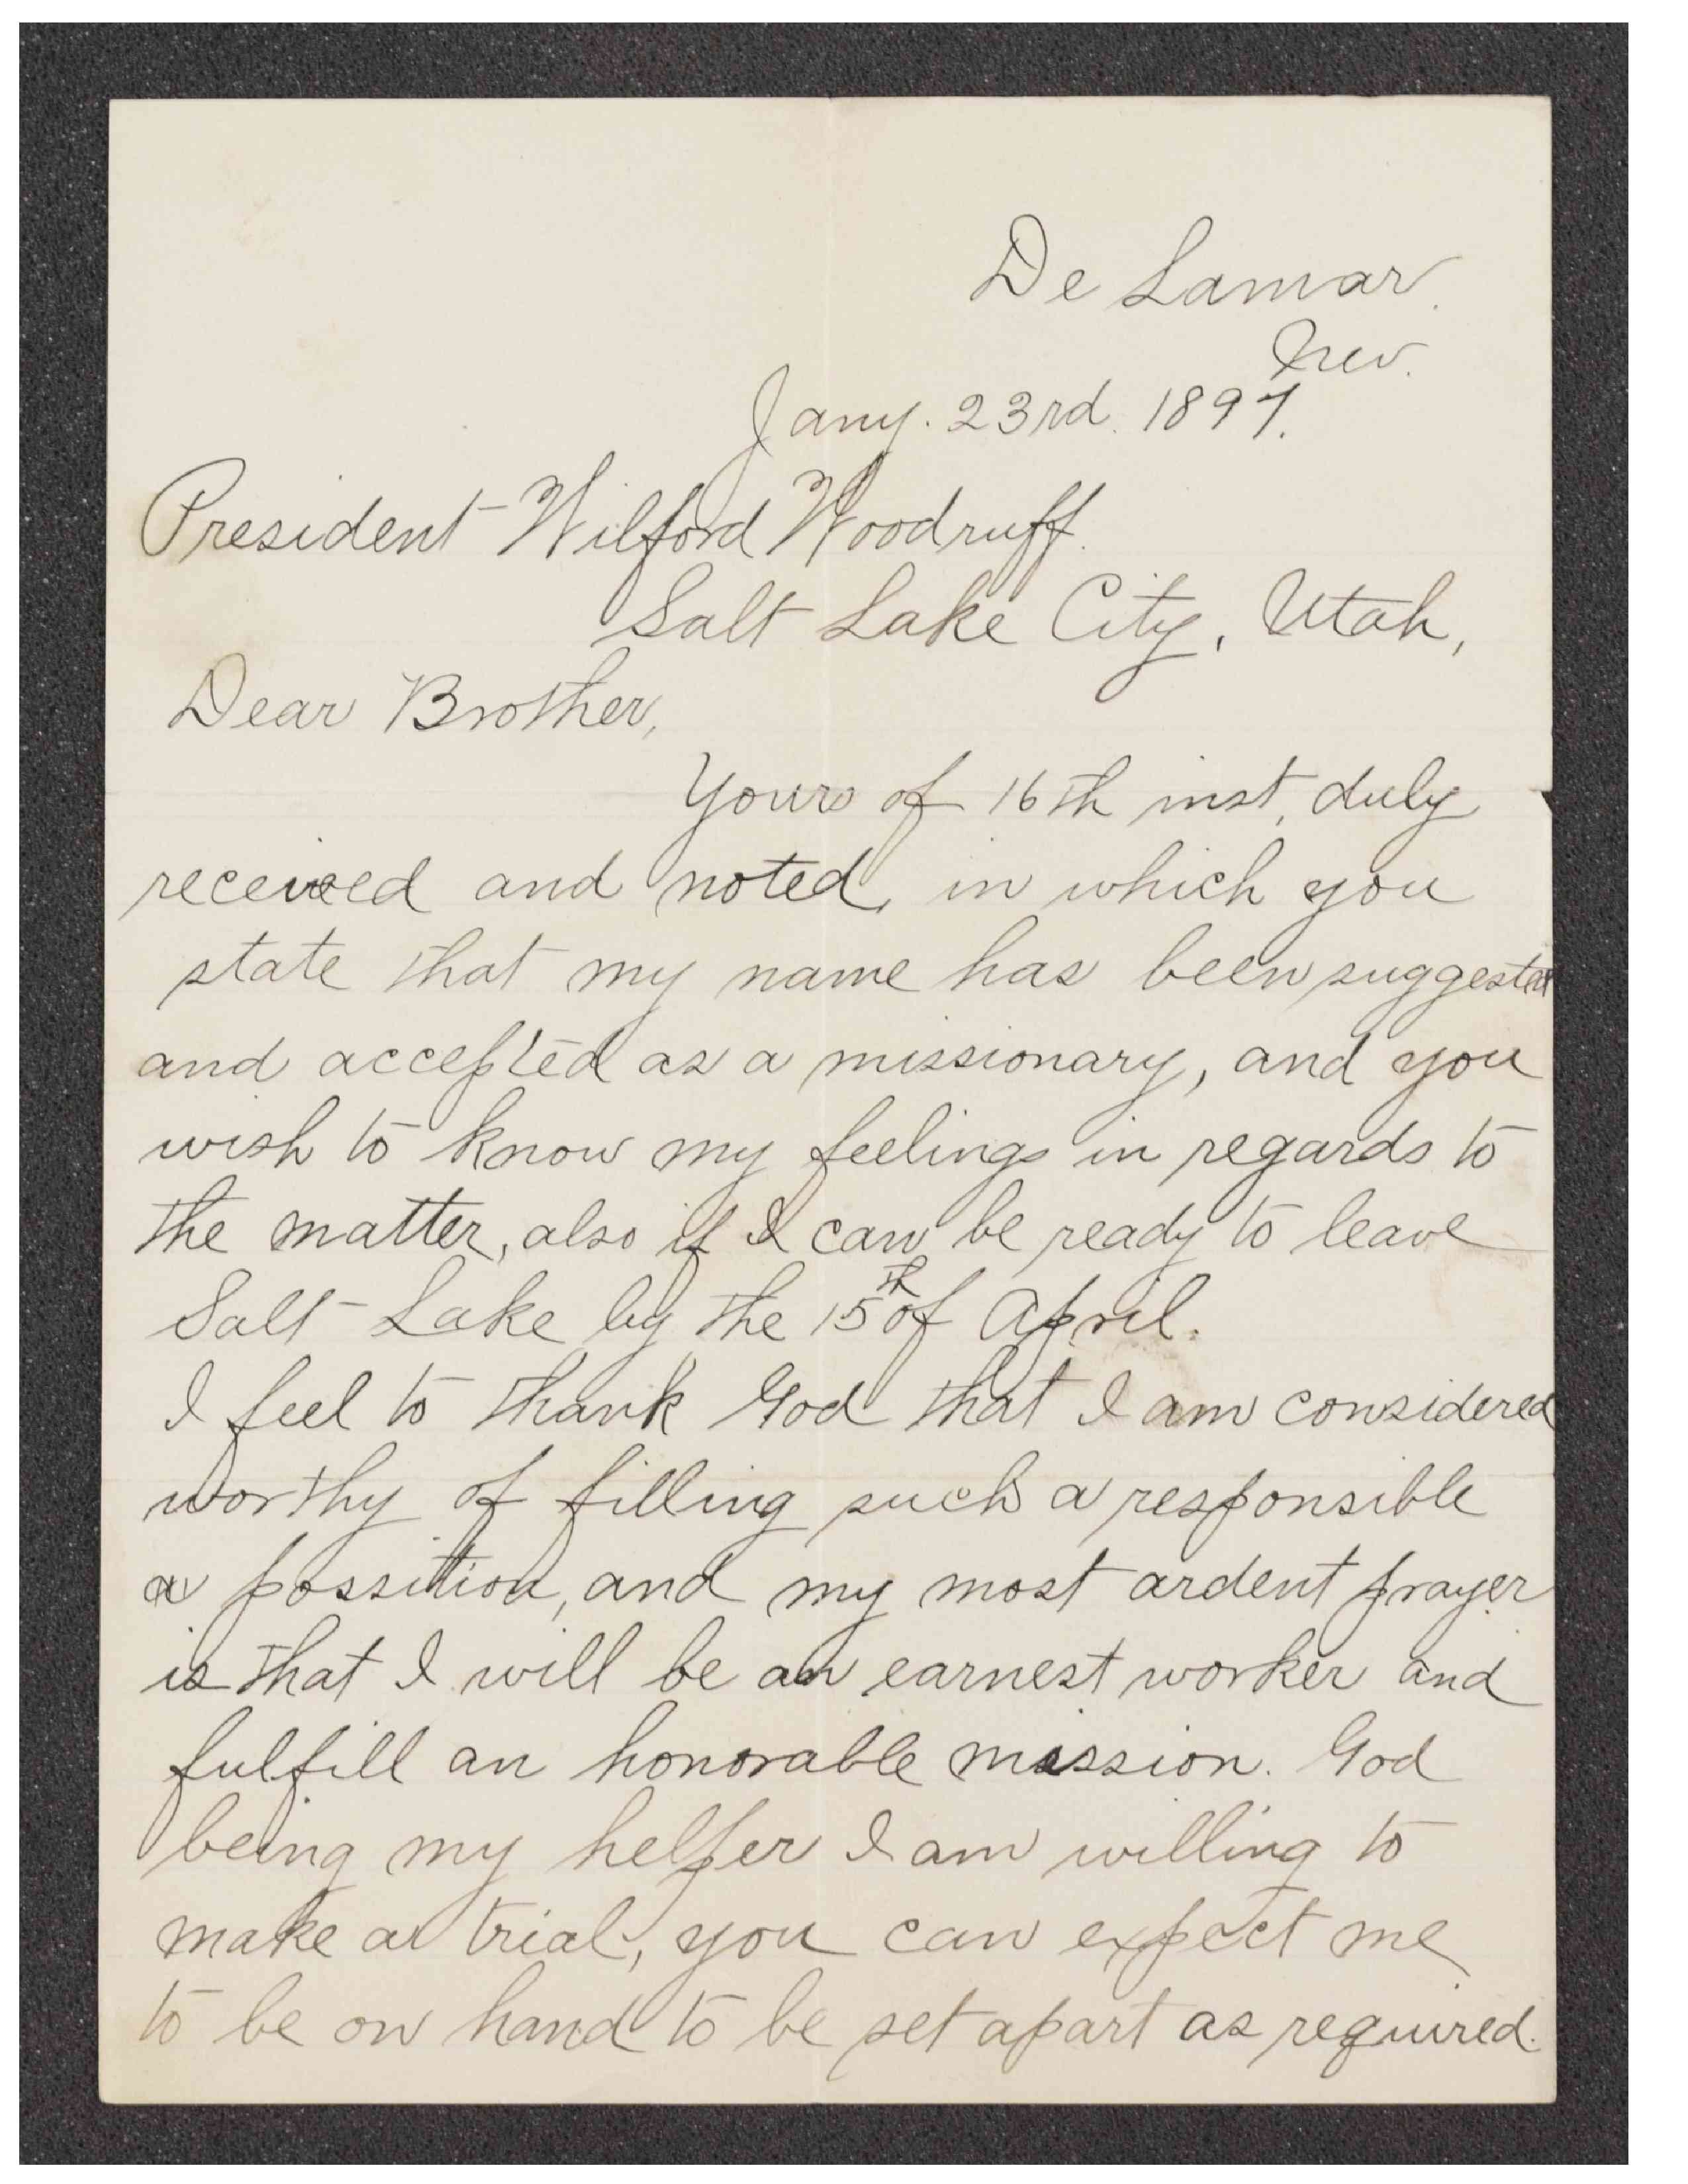 De Lamar.
Nev.
Jany. 23rd. 1897.
President Wilford Woodruff.
Salt Lake City, Utah,
Dear Brother,
Yours of 16th inst, duly
received and noted, in which you
state that my name has been suggested
and accepted as a missionary, and you
wish to know my feelings in regards to
the matter, also if I can be ready to leave
Salt Lake by the 15th of April.
I feel to thank God that I am considered
worthy of filling such a responsible
a possition, and my most ardent prayer
is that I will be an earnest worker and
fulfill an honorable mission. God
being my helper I am willing to
make a trial, you can expect me
to be on hand to be set apart as required.